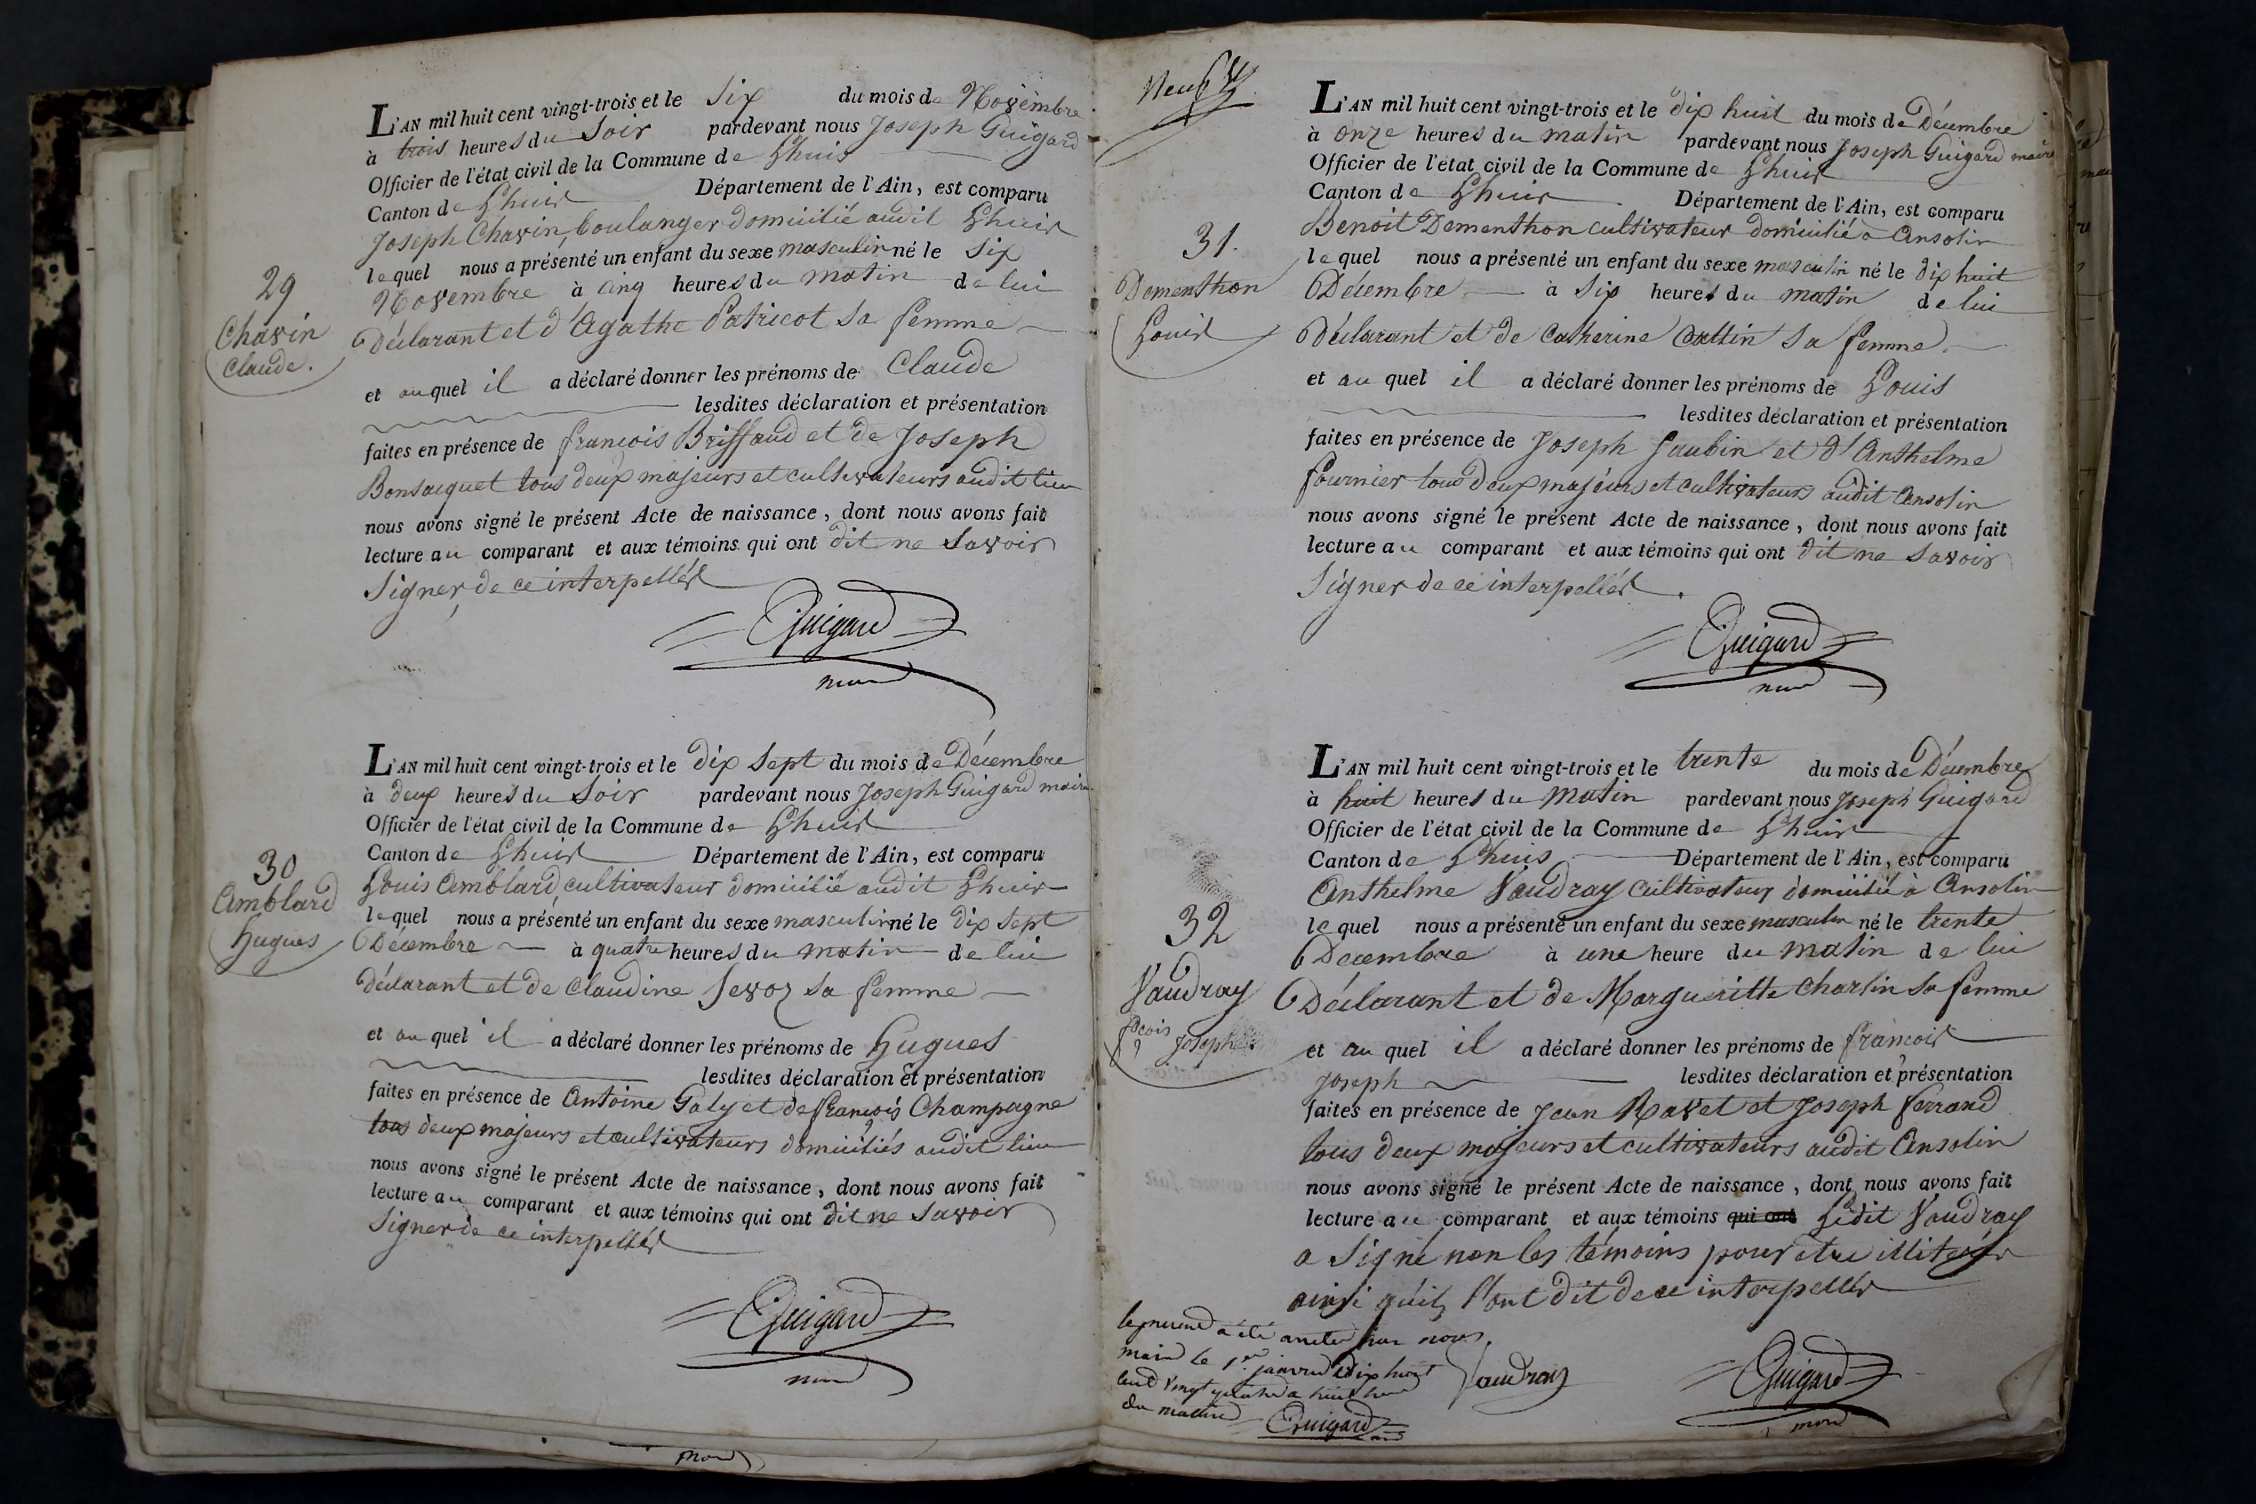 L'AN mil huit cent vingt-trois et le six du mois de Novembre
à trois heures du soir pardevant nous Joseph Guigard
Officier de l'état civil de la Commune de Lhuis
Canton de Lhuis Département de l'Ain, est comparu
Joseph Chavin, boulanger domicilié audit Lhuis
lequel nous a présenté un enfant du sexe masculin né le six
Novembre à cinq heures du matin de lui
29
Chavin
Claude.
Déclarant et d'Agathe Patricot sa femme
et auquel il a déclaré donner les prénoms de Claude
lesdites déclaration et présentation
faites en présence de francois Briffaud et de Joseph
Bonsacquet tous deux majeurs et cultivateurs audit lieu
nous avons signé le présent Acte de naissance, dont nous avons fait
lecture au comparant et aux témoins qui ont dit ne savoir
signer, de ce interpellés
Guigard
L'AN mil huit cent vingt-trois et le dix sept du mois de Décembre
à deux heures du soir pardevant nous Joseph Guigard maire
Officier de l'état civil de la Commune de Lhuis
Canton de Lhuis Département de l'Ain, est comparu
30
Amblard
Hugues
Louis Amblard cultivateur domicilié audit Lhuis
lequel nous a présenté un enfant du sexe masculin né le dix sept
Décembre à quatre heures du matin de lui
déclarant et de Claudine Sevoz sa femme
et auquel il a déclaré donner les prénoms de Hugues
lesdites déclaration et présentation
faites en présence de Antoine Galy et de françois Champagne
tous deux majeurs et cultivateurs domiciliés audit lieu
nous avons signé le présent Acte de naissance, dont nous avons fait
lecture au comparant et aux témoins qui ont dit ne savoir
signer de ce interpellés
Guigard
L'AN mil huit cent vingt-trois et le dix huit du mois de Décembre
à onze heures du matin pardevant nous Joseph Guigard maire
Officier de l'état civil de la Commune de Lhuis
Canton de Lhuis Département de l'Ain, est comparu
31.
Dementhon
Louis
Benoit Dementhon cultivateur domicilié à Ansolin
lequel nous a présenté un enfant du sexe masculin né le dix huit
Décembre à six heures du matin de lui
Déclarant et de Catherine Cattin sa femme
et au quel il a déclaré donner les prénoms de Louis
lesdites déclaration et présentation
faites en présence de Joseph Jaubin et d'Anthelme
fournier tous deux majeurs et cultivateurs audit Ansolin
nous avons signé le présent Acte de naissance, dont nous avons fait
lecture au comparant et aux témoins qui ont dit ne savoir
signer de ce interpellés.
Guigard
L'AN mil huit cent vingt-trois et le trente du mois de Décembre
à huit heures du matin pardevant nous Joseph Guigard
Officier de l'état civil de la Commune de Lhuis
Canton de Lhuis Département de l'Ain, est comparu
32
Vaudray
fçois
Joseph
Anthelme Vaudray cultivateur domicilié à Ansolin
lequel nous a présenté un enfant du sexe masculin né le trente
Decembre à une heure du matin de lui
Déclarant et de Margueritte Charlin sa femme
et au quel il a déclaré donner les prénoms de françois
Joseph lesdites déclaration et présentation
faites en présence de Jean Ravet et Joseph ferrand
tous deux majeurs et cultivateurs audit Ansolin
nous avons signé le présent Acte de naissance, dont nous avons fait
lecture au comparant et aux témoins qui ont Ledit Vaudray
a signé non les témoins pour être illiterés
ainsi qu'ils l'ont dit de ce interpellés
le présent a été arreté par nous
maire le 1er janvier dix huit
cent vingt quatre a huit heures
du matin
Guigard
Vaudray
Guigard